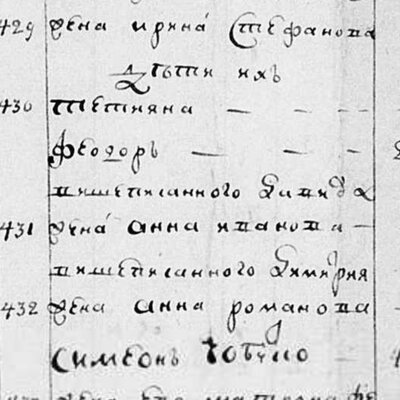 429 Жена Ирина Стефанова
Дѣти ихъ
430 Тетияна — — —
Феодоръ — — —
вишеписанного
431 Жена Анна Иванова —
вишеписанного Димитрия
432 Жена Анна Романова
Симеонъ